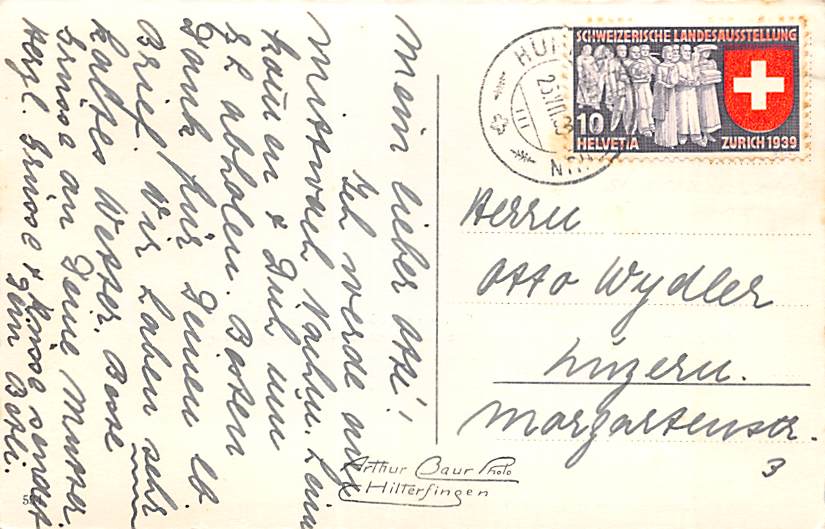 Mein lieber Otti!
Ich werde am
Mittwoch Nachm. heim
kommen & Dich um
abholen. Besten
Dank für Deinen lb.
Brief. Wir haben sehr
kaltes Wetter. Beste
Grüsse an Deine Mutter.
Herzl. Grüsse & Küsse sendet
Dein Betli.
SCHWEIZERISCHE LANDESAUSSTELLUNG
10
HELVETIA
ZÜRICH 1939
Herrn
Otto Wydler
Luzern.
Morgartenstr.
3
Arthur Baur Photo
Hilterfingen